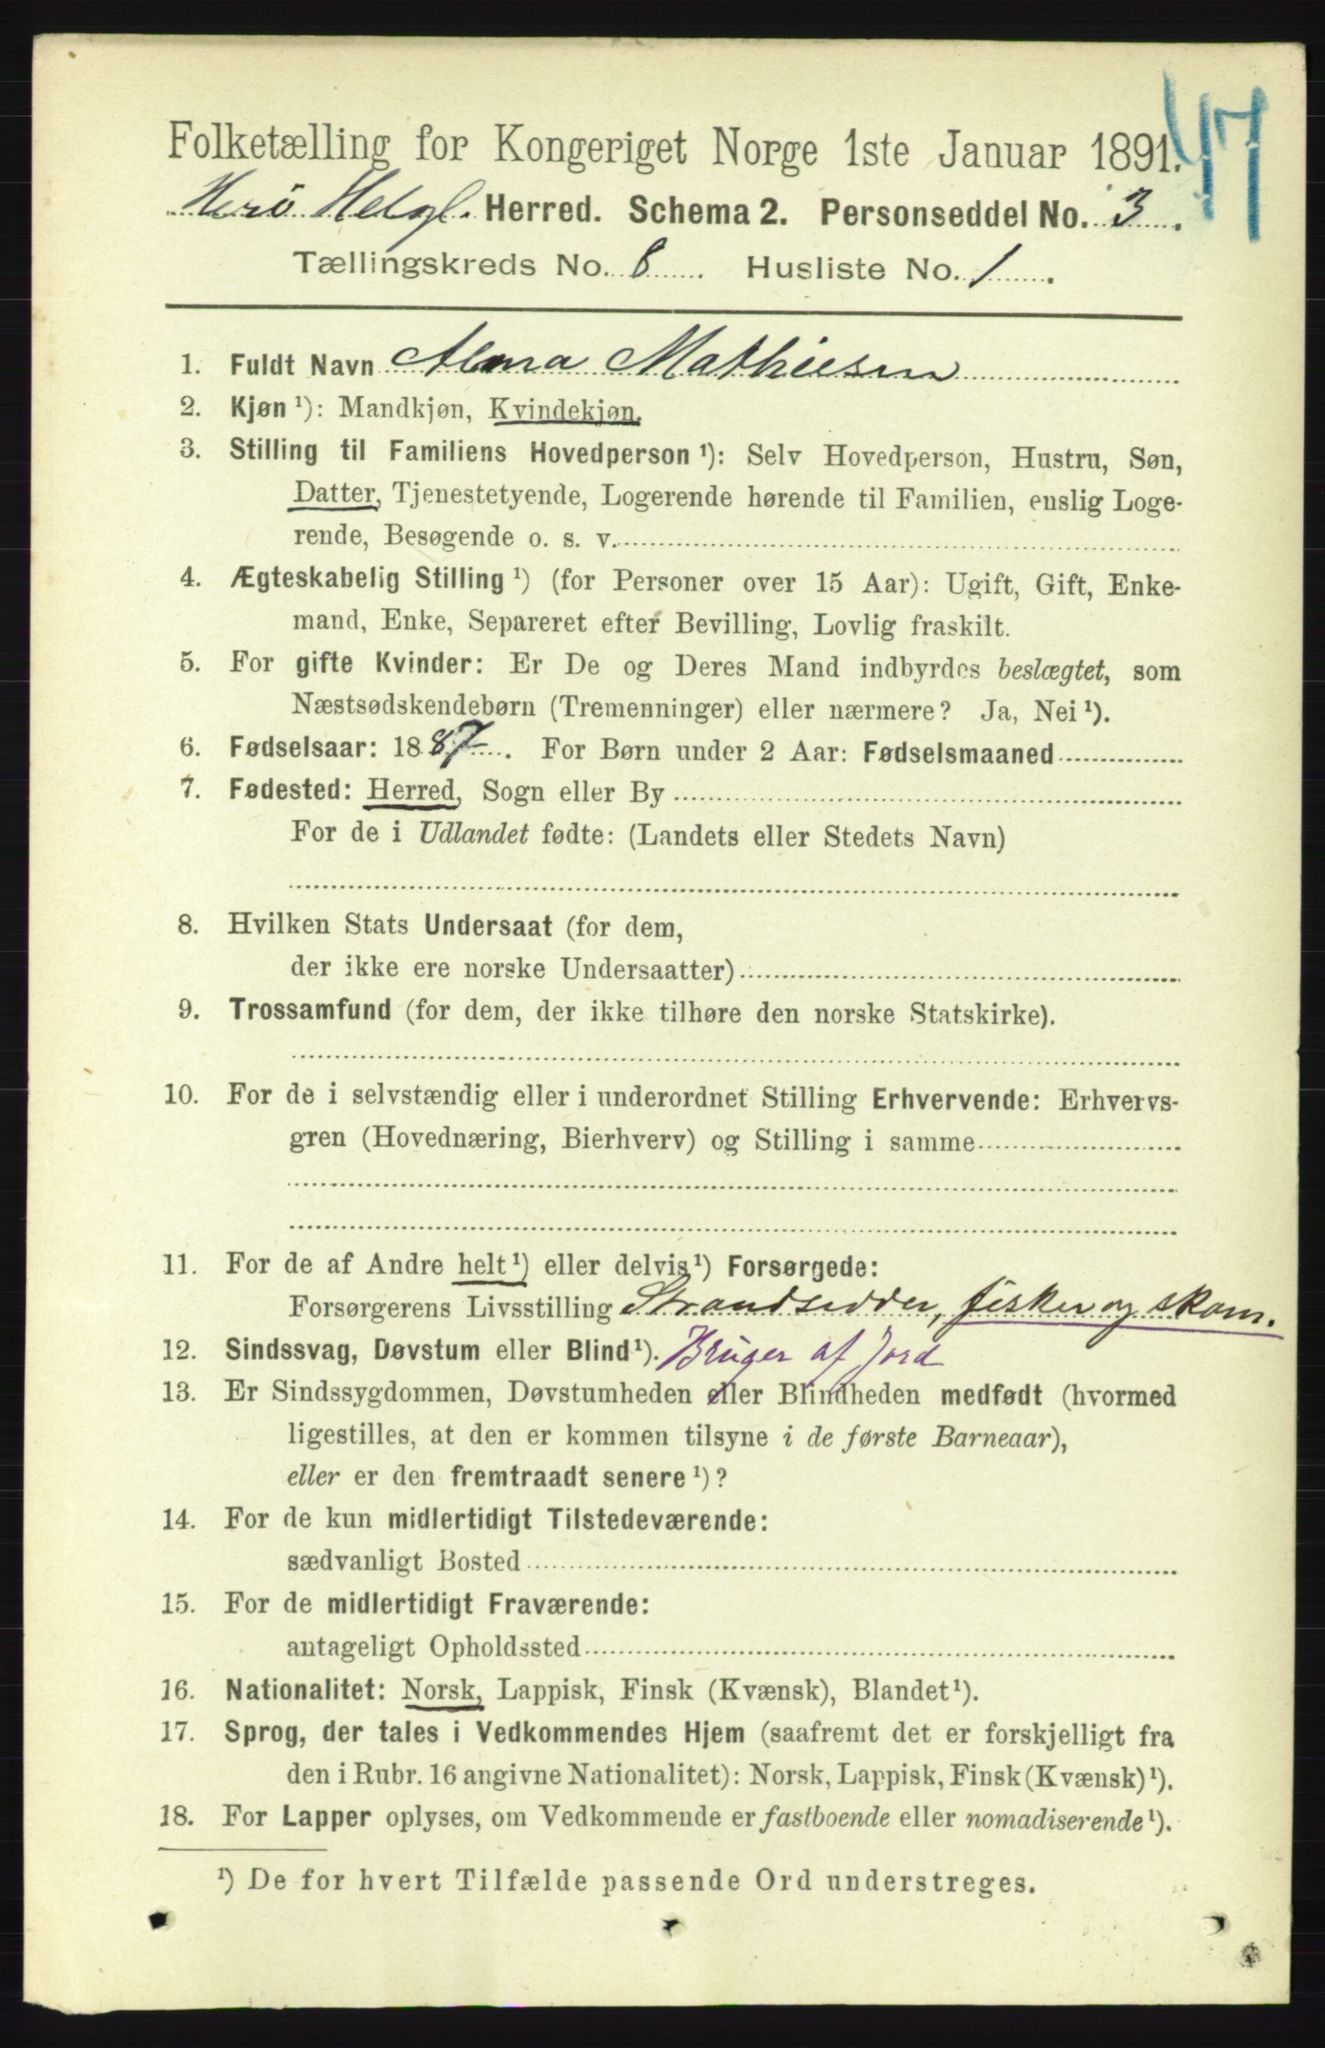 47
Folketælling for Kongeriget Norge 1ste Januar 1891.
Herö Helgl. Herred. Schema 2. Personseddel No. 3.
Tællingskreds No. 8 Husliste No. 1.
1. Fuldt Navn Alma Mathiesen
2. Kjøn ¹): Mandkjøn, Kvindekjøn.
3. Stilling til Familiens Hovedperson ¹): Selv Hovedperson, Hustru, Søn,
Datter, Tjenestetyende, Logerende hørende til Familien, enslig Loge-
rende, Besøgende o. s. v.
4. Ægteskabelig Stilling ¹) (for Personer over 15 Aar): Ugift, Gift, Enke-
mand, Enke, Separeret efter Bevilling, Lovlig fraskilt.
5. For gifte Kvinder: Er De og Deres Mand indbyrdes beslægtet, som
Næstsødskendebørn (Tremenninger) eller nærmere? Ja, Nei ¹).
6. Fødselsaar: 1887. For Børn under 2 Aar: Fødselsmaaned
7. Fødested: Herred, Sogn eller By
For de i Udlandet fødte: (Landets eller Stedets Navn)
8. Hvilken Stats Undersaat (for dem,
der ikke ere norske Undersaatter)
9. Trossamfund (for dem, der ikke tilhøre den norske Statskirke).
10. For de i selvstændig eller i underordnet Stilling Erhvervende: Erhvervs-
gren (Hovednæring, Bierhverv) og Stilling i samme
11. For de af Andre helt ¹) eller delvis ¹) Forsørgede:
Forsørgerens Livsstilling Strandsidder, fisker og skom.
12. Sindssvag, Døvstum eller Blind ¹). Bruger af Jord
13. Er Sindssygdommen, Døvstumheden eller Blindheden medfødt (hvormed
ligestilles, at den er kommen tilsyne i de første Barneaar),
eller er den fremtraadt senere ¹)?
14. For de kun midlertidigt Tilstedeværende:
sædvanligt Bosted
15. For de midlertidigt Fraværende:
antageligt Opholdssted
16. Nationalitet: Norsk, Lappisk, Finsk (Kvænsk), Blandet ¹).
17. Sprog, der tales i Vedkommendes Hjem (saafremt det er forskjelligt fra
den i Rubr. 16 angivne Nationalitet): Norsk, Lappisk, Finsk (Kvænsk) ¹).
18. For Lapper oplyses, om Vedkommende er fastboende eller nomadiserende ¹).
¹) De for hvert Tilfælde passende Ord understreges.